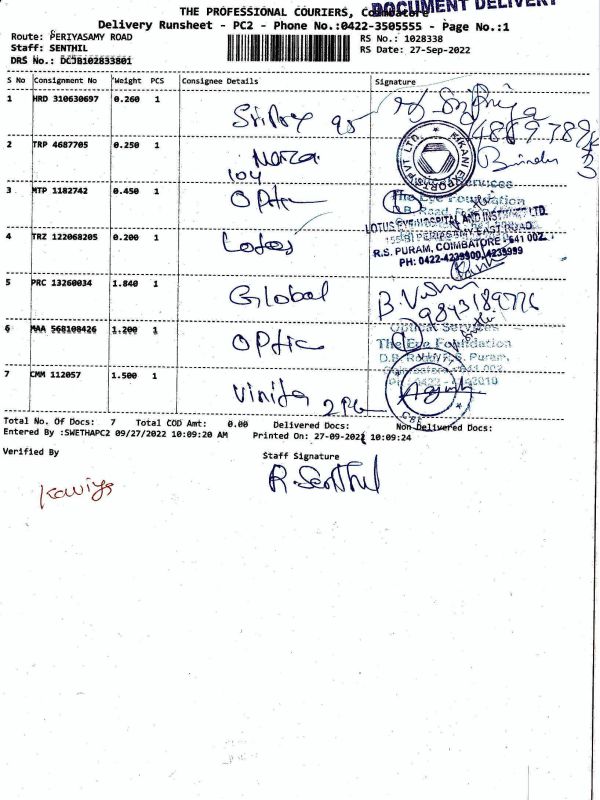 DOCUMENT DELIVERY
THE PROFESSIONAL COURIERS, Coimbatore
Delivery Runsheet - PC2 - Phone No.:0422-3505555 - Page No.:1
Route: PERIYASAMY ROAD
RS No.: 1028338
Staff: SENTHIL
RS Date: 27-Sep-2022
DRS No.: DCJB102833801
S No Consignment No Weight PCS Consignee Details Signature
1 HRD 310630697 0.260 1
2 TRP 4687705 0.250 1
KIKANI EXPORTS PVT LTD.
104
3 MTP 1182742 0.450 1 Optic
The Eye Foundation
LOTUS EYE HOSPITAL AND INSTITUTE LTD.
4 TRZ 122068205 0.200 1 Lotos
R.S. PURAM, COIMBATORE - 641 002.
PH: 0422-4229900, 4239999
5 PRC 13260034 1.840 1 Global
9843189776
6 MAA 568108426 1.200 1 Optic
Optical Services
The Eye Foundation
D.B. Road, R.S. Puram,
7 CMM 112057 1.500 1 Vinita
Total No. Of Docs: 7 Total COD Amt: 0.00 Delivered Docs: Non Delivered Docs:
Entered By :SWETHAPC2 09/27/2022 10:09:20 AM Printed On: 27-09-2022 10:09:24
Verified By
Staff Signature
Kaviya
R. Senthil